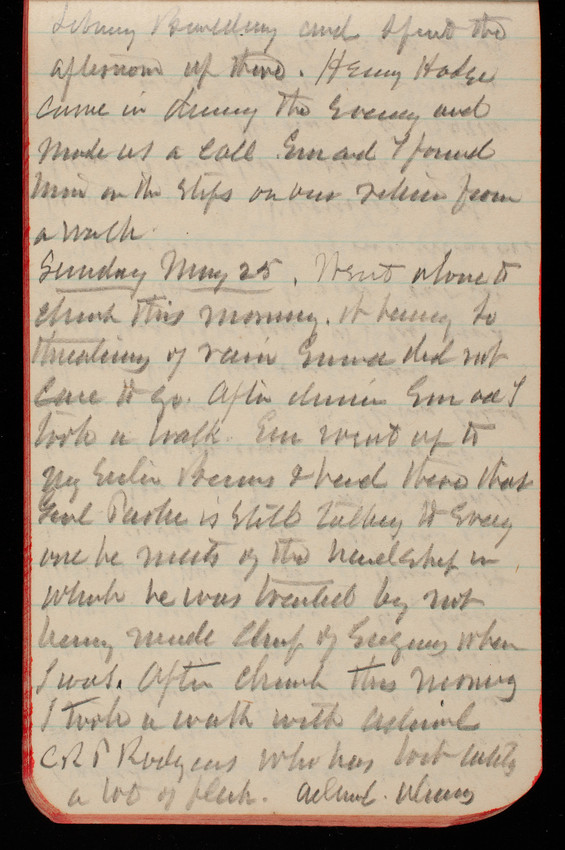 Library Building and spent the
afternoon up there. Henry Hodge
came in during the Evening and
made us a call Em and I found
him on the steps on our return from
a walk.
Sunday May 25. Went alone to
church this morning. it being so
threatening of rain Emma did not
care to go. After dinner Em and I
took a walk. Em went up to
my & heard there that
Genl Parke is still talking to Every
one he meets of the hardship in
which he was treated by not
being made Chief of Engineers when
I was. After church this morning
I took a walk with admiral
C R P Rodgers who has lost lately
a lot of flesh. admiral